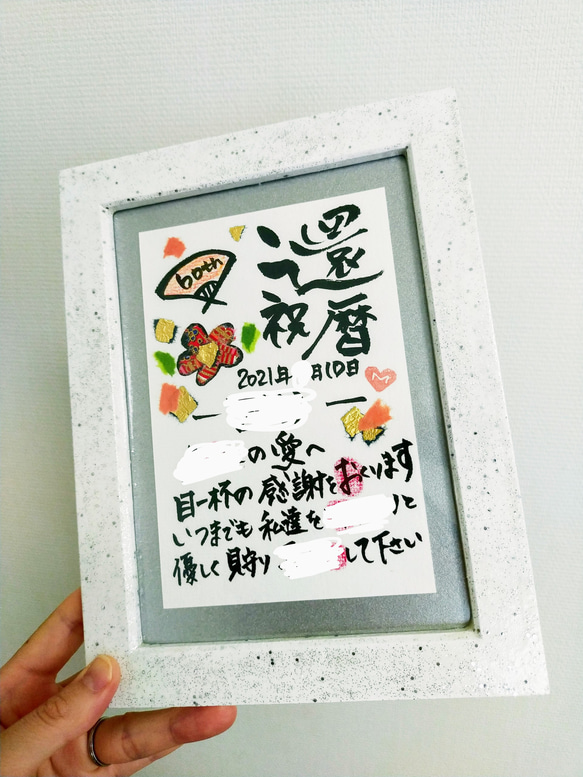 60th
還暦
祝
2021年 月10日
の愛へ
目一杯の感謝をおくります
いつまでも私達を と
優しく見守り して下さい